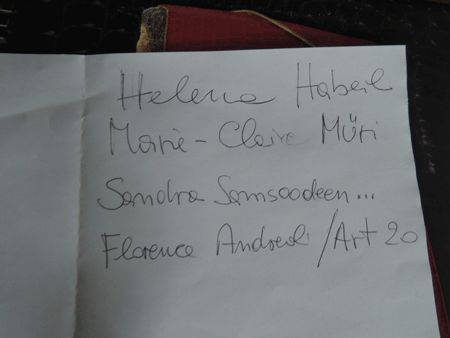 Helena Habeil
Marie-Claire Müri
Sandra Samsoodeen...
Florence Andreoli/Art 20